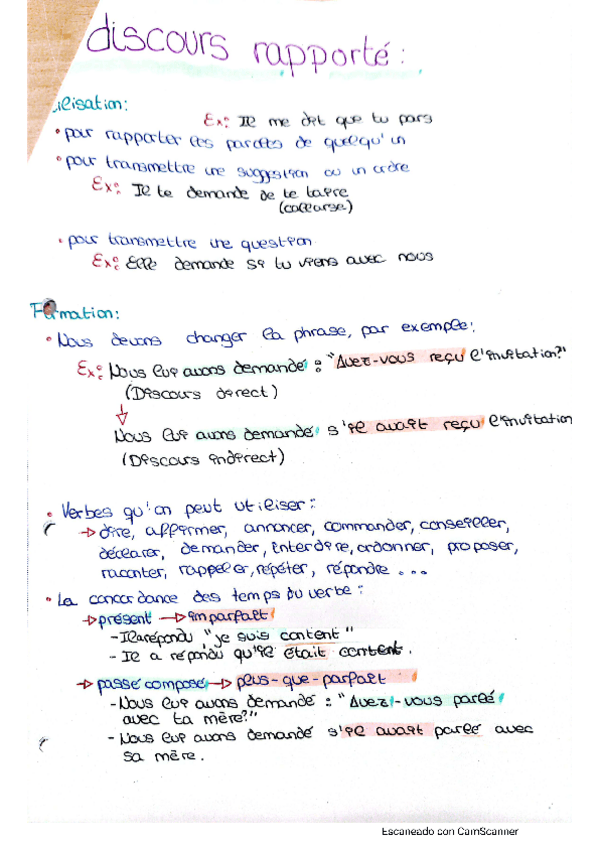 discours rapporté:
ilisation:
Ex: Il me dit que tu pars
• pour rapporter les paroles de quelqu'un
• pour transmettre une suggestion ou un ordre
Ex: Il te demande de te taire
(callarse)
• pour transmettre une question
Ex: Elle demande si tu viens avec nous
Formation:
• Nous devons changer la phrase, par exemple:
Ex: Nous lui avons demandé : "Avez-vous reçu l'invitation?"
(Discours direct)
↓
Nous lui avons demandé s'il avait reçu l'invitation
(Discours indirect)
• Verbes qu'on peut utiliser:
→ dire, affirmer, annoncer, commander, conseiller,
déclarer, demander, interdire, ordonner, proposer,
raconter, rappeler, répéter, répondre ...
• La concordance des temps du verbe:
→ présent → imparfait
- Il a répondu "je suis content"
- Il a répondu qu'il était content.
→ passé composé → plus-que-parfait
- Nous lui avons demandé : "Avez-vous parlé
avec ta mère?"
- Nous lui avons demandé s'il avait parlé avec
sa mère.
Escaneado con CamScanner